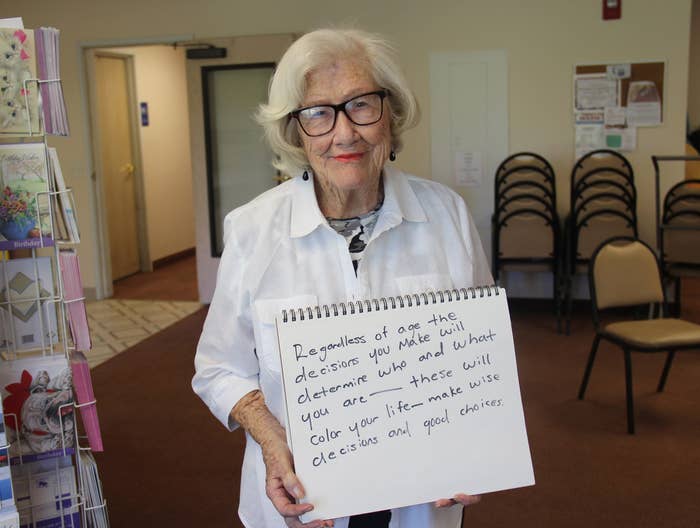 Regardless of age the
decisions you make will
determine who and what
you are — these will
color your life — make wise
decisions and good choices.
Birthday
Birthday